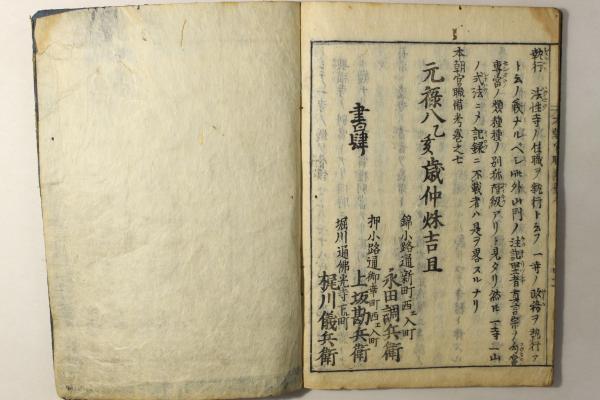 執行ノ法性寺ノ住職ヲ執行ト云フ一寺ノ政務ヲ執行フ
ト云ノ義ナルベシ此外山門ノ注記聖者真言宗ノ
専當ノ類種種ノ別称階級アリト見タリ然レ𪜈一寺一山
ノ式法ニメ記録ニ不載者ハ是ヲ畧スルナリ
本朝官職備考巻之七
元禄八乙亥歳仲秌吉旦
錦小路通新町西エ入町
永田調兵衛
書肆
押小路通御幸町西エ入町
上坂勘兵衛
堀川通佛光寺下町
梶川儀兵衛